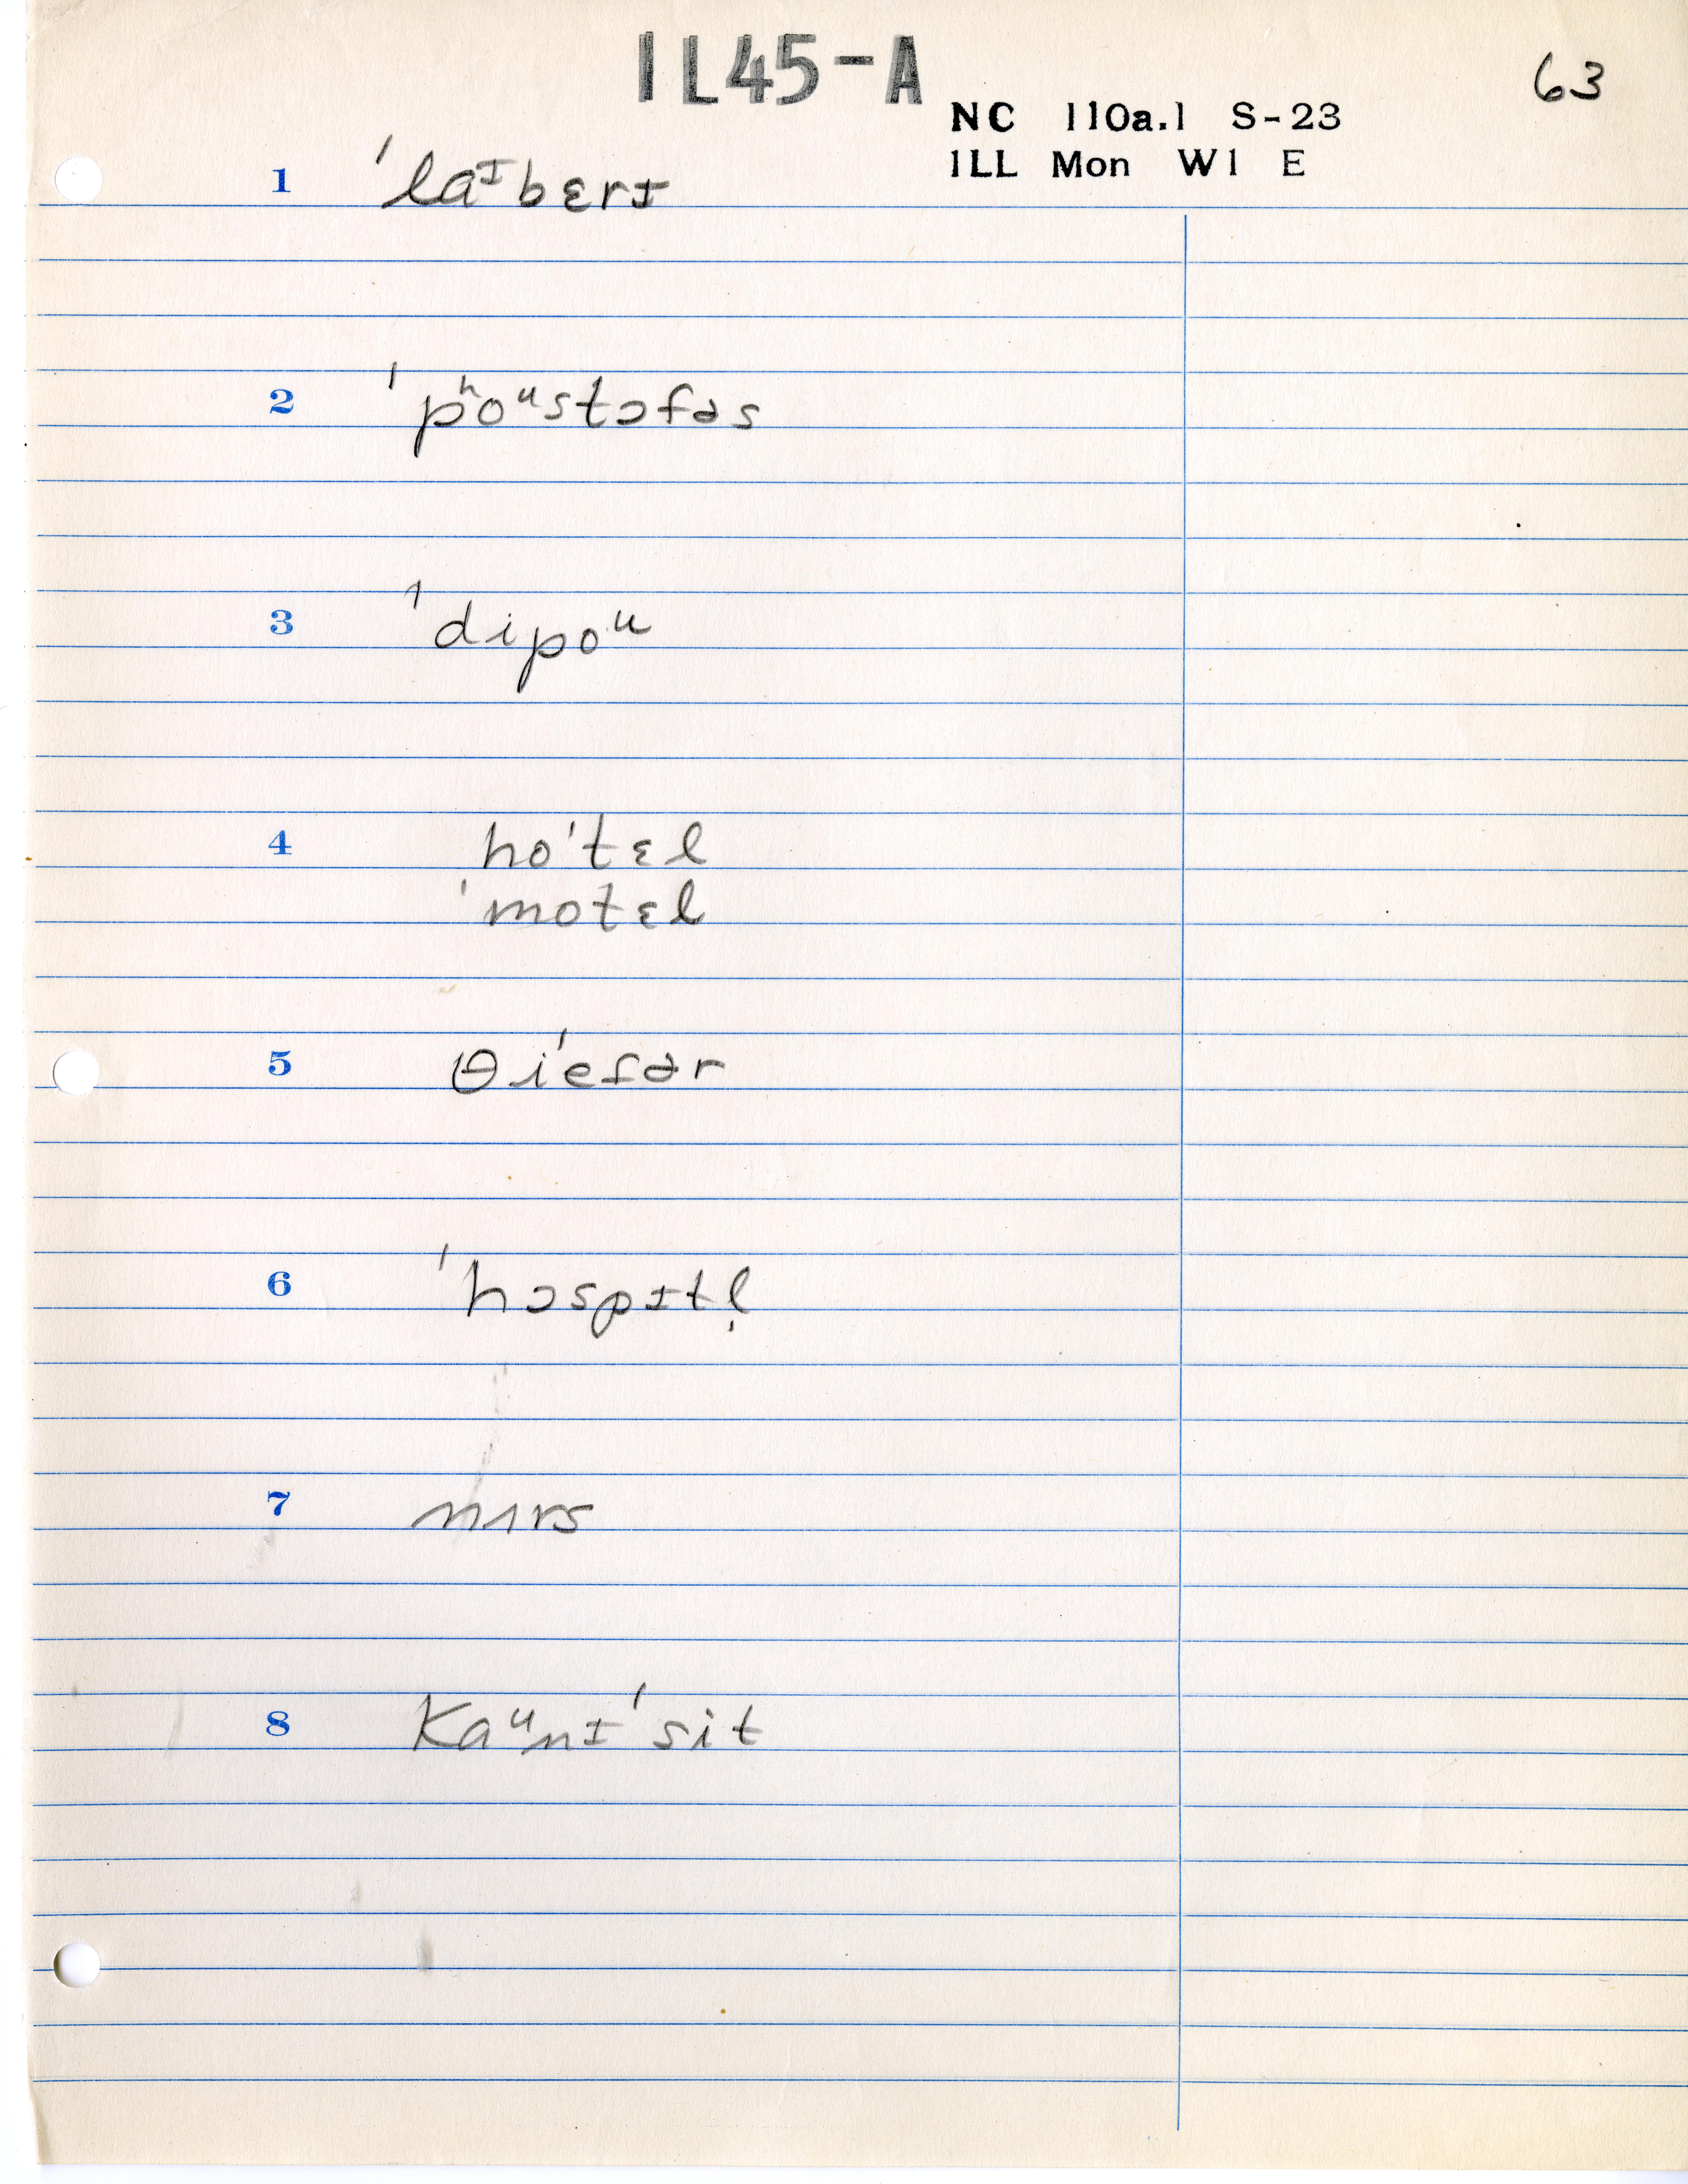 IL45-A
63
NC 110a.1 S-23
ILL Mon W1 E
1 ˈlaᶦbɛrɪ
2 ˈpʰoᵘstɔfəs
3 ˈdipoᵘ
4 hoˈtɛl
ˈmotɛl
5 θiˈefər
6 ˈhɔspɪtl̩
7 nɪrs
8 kaᵘnɪˈsit